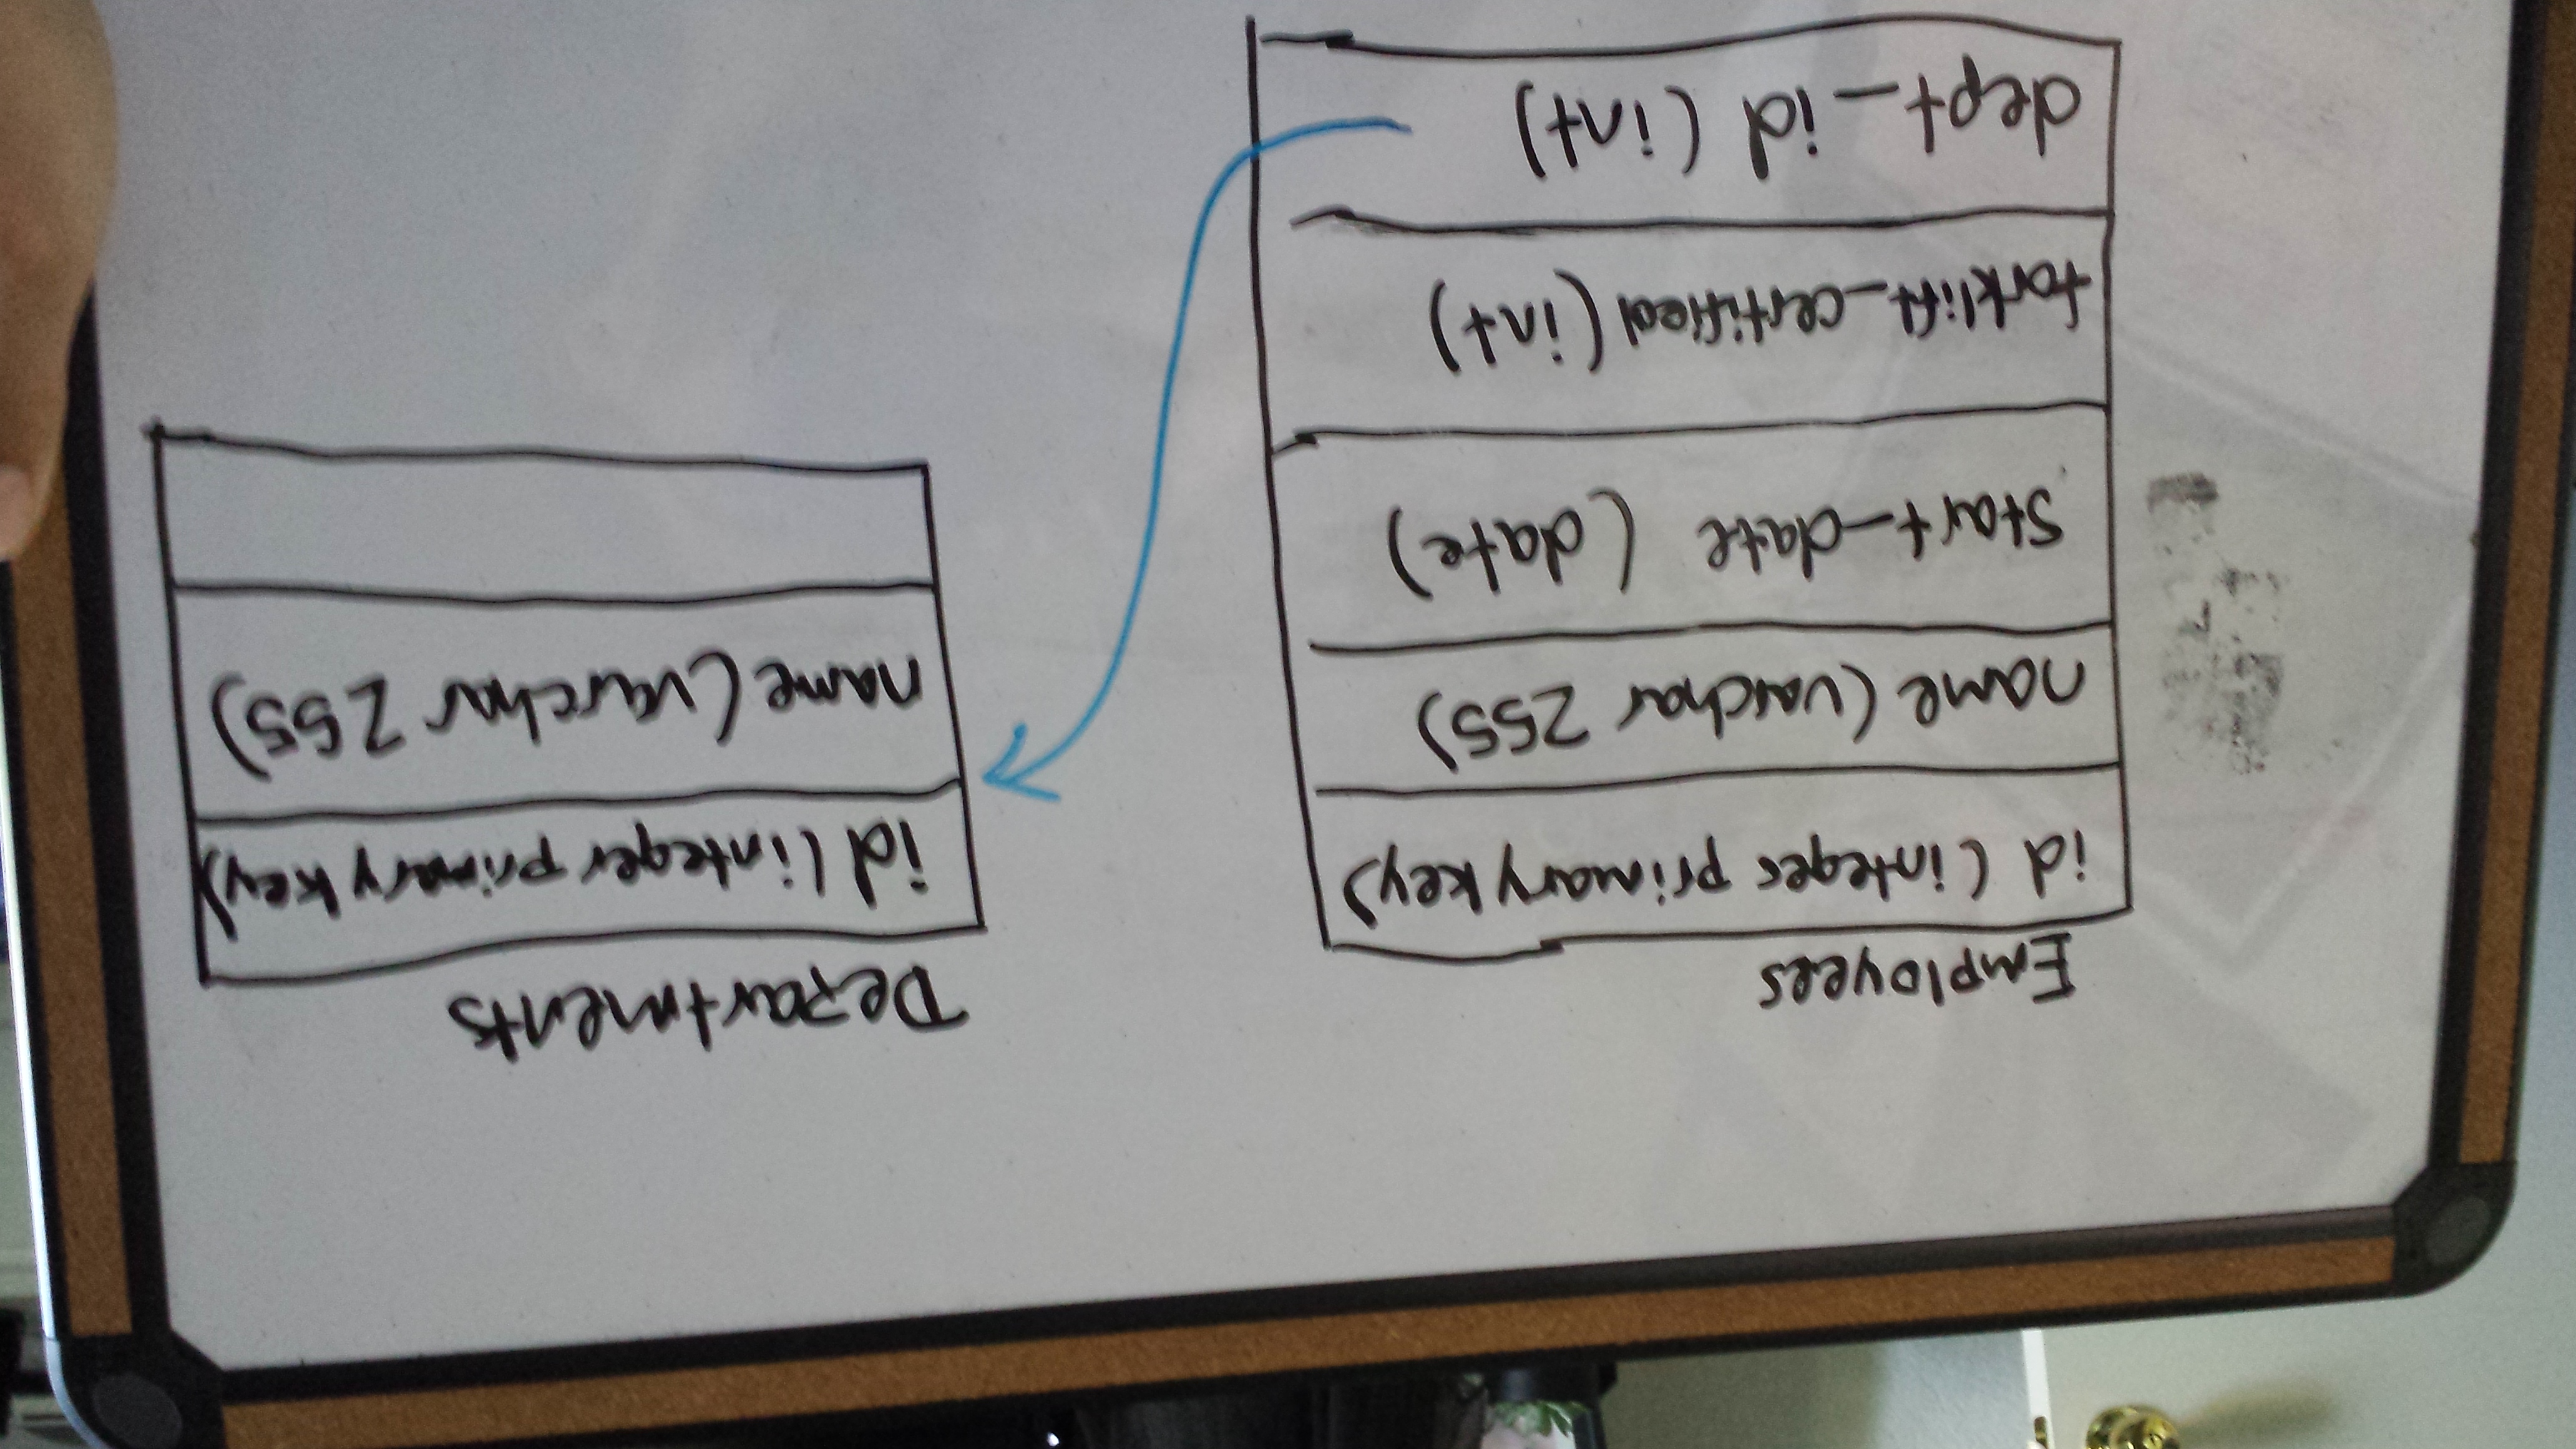 Employees
id (integer primary key)
name (varchar 255)
start_date (date)
forklift_certified (int)
dept_id (int)
Departments
id (integer primary key)
name (varchar 255)